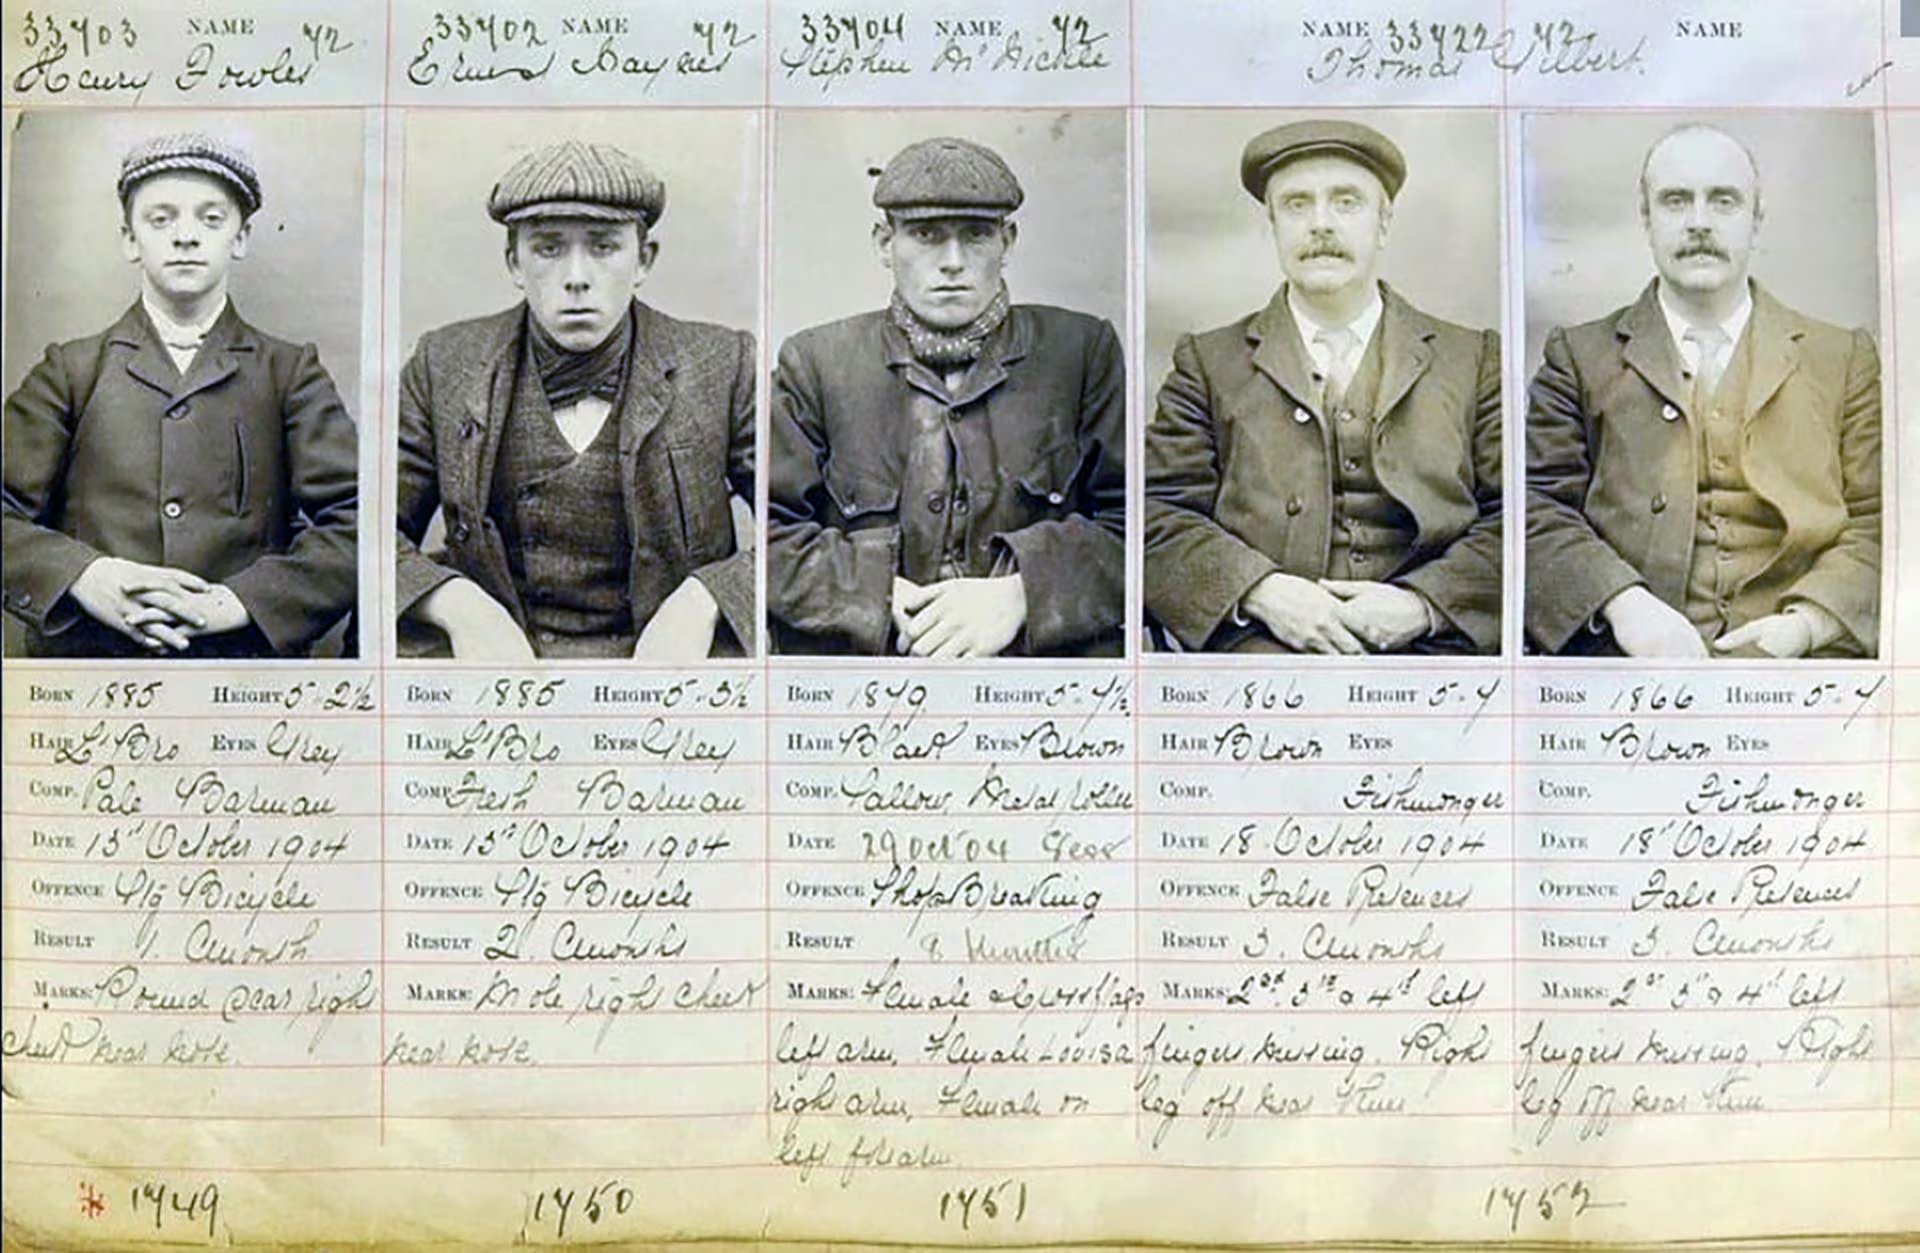 33703 NAME 72
Henry Fowler
Born 1885 Height 5-2½
Hair L'Bro Eyes Grey
Comp. Pale Barman
Date 13" October 1904
Offence Slg Bicycle
Result 1. Cmonth
Marks: Round scar righ
cheek near nose.
* 1749
33702 NAME 72
Ernest Haynes
Born 1885 Height 5-3½
Hair L'Bro Eyes Grey
Comp. Fresh Barman
Date 13" October 1904
Offence Slg Bicycle
Result 2. Cmonths
Marks: Mole right cheek
near nose.
1750
33704 NAME 72
Stephen
Born 1879 Height 5-7½
Hair Black Eyes Brown
Comp. Sallow, Metal roller
Date 29 Oct 04 Sess
Offence ShopBreaking
Result
Marks: Female & Cross flags
left arm, Female Louisa
right arm, Female on
left forearm.
1751
NAME 33722 72
Thomas Gilbert.
Born 1866 Height 5-7
Hair Brown Eyes
Comp. Fishmonger
Date 18. October 1904
Offence False Pretences
Result 3. Cmonths
Marks: 2nd. 3rd & 4th left
fingers missing. Right
leg off near Knee
NAME
Born 1866 Height 5-7
Hair Brown Eyes
Comp. Fishmonger
Date 18" October 1904
Offence False Pretences
Result 3. Cmonths
Marks: 2nd 3rd & 4th left
fingers missing. Right
leg off near Knee
1752